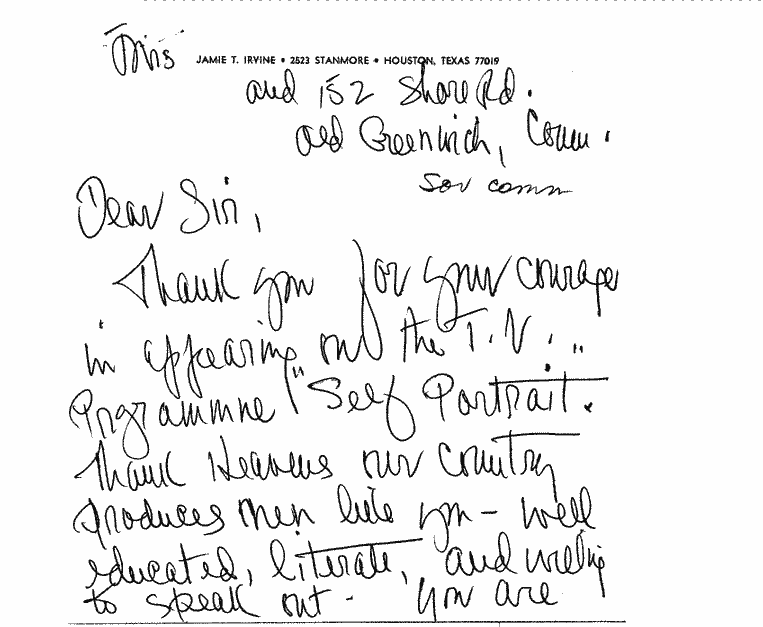 This JAMIE T. IRVINE • 2523 STANMORE • HOUSTON, TEXAS 77019
and 152 Shore Rd.
Old Greenwich, Conn.
Dear Sir,
Thank you for your courage
in appearing on the T.V.
Programme "Self Portrait."
Thank Heavens our country
produces men like you – well
educated, literate, and willing
to speak out - You are